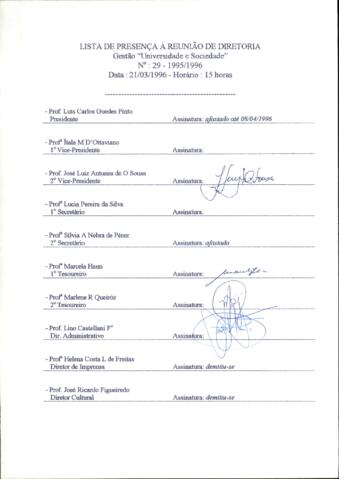 LISTA DE PRESENÇA À REUNIÃO DE DIRETORIA
Gestão "Universidade e Sociedade"
Nº : 29 - 1995/1996
Data : 21/03/1996 - Horário : 15 horas
- Prof. Luis Carlos Guedes Pinto
Presidente Assinatura: afastado até 09/04/1996
- Profª Ítala M D'Ottaviano
1º Vice-Presidente Assinatura:
- Prof. José Luiz Antunes de O Sousa
2º Vice-Presidente Assinatura:
- Profª Lucia Pereira da Silva
1º Secretário Assinatura:
- Profª Silvia A Nebra de Pérez
2º Secretário Assinatura: afastada
- Profª Marcela Haun
1º Tesoureiro Assinatura:
- Profª Marlene R Queiróz
2º Tesoureiro Assinatura:
- Prof. Lino Castellani Fº
Dir. Administrativo Assinatura:
- Profª Helena Costa L de Freitas
Diretor de Imprensa Assinatura: demitiu-se
- Prof. José Ricardo Figueiredo
Diretor Cultural Assinatura: demitiu-se